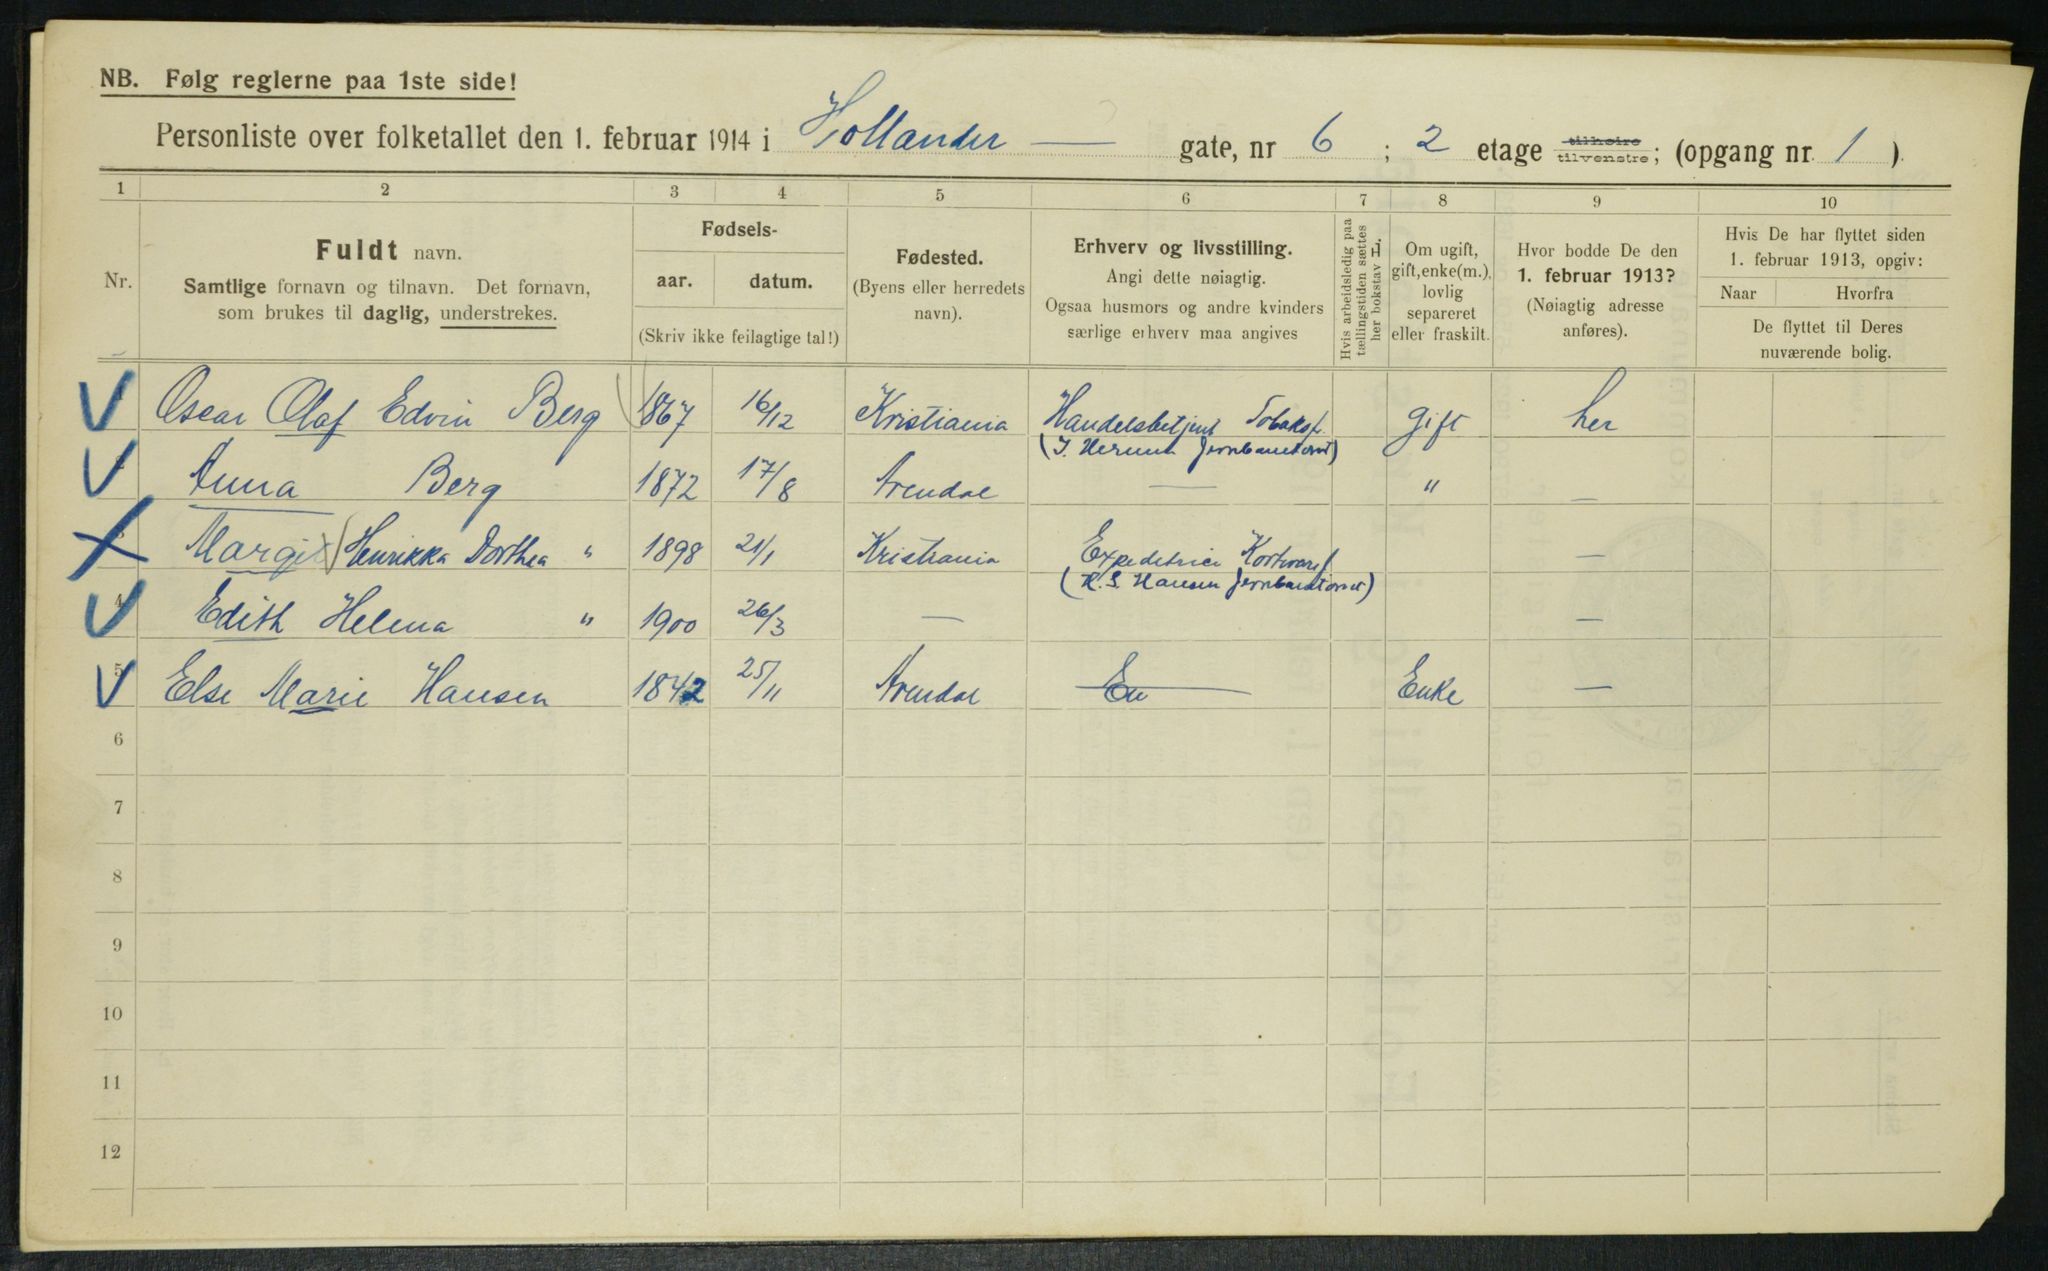 NB. Følg reglerne paa 1ste side!
Personliste over folketallet den 1. februar 1914 i Hollander — gate, nr 6 ; 2 etage tilhøire tilvenstre; (opgang nr. 1 )
1 2 3 4 5 6 7 8 9 10
Nr.
Fuldt navn.
Samtlige fornavn og tilnavn. Det fornavn,
som brukes til daglig, understrekes.
Fødsels-
aar. datum.
(Skriv ikke feilagtige tal!)
Fødested.
(Byens eller herredets
navn).
Erhverv og livsstilling.
Angi dette nøiagtig.
Ogsaa husmors og andre kvinders
særlige erhverv maa angives
Hvis arbeidsledig paa
tællingstiden sættes
her bokstav L.
Om ugift,
gift, enke(m.),
lovlig
separeret
eller fraskilt.
Hvor bodde De den
1. februar 1913?
(Nøiagtig adresse
anføres).
Hvis De har flyttet siden
1. februar 1913, opgiv:
Naar Hvorfra
De flyttet til Deres
nuværende bolig.
Oscar Olaf Edvin Berg 1867 16/12 Kristiania Handelsbetjent Tobaksf. gift her
(J. Jernbanetorvet)
2 Anna Berg 1872 17/8 Arendal — " —
3 Margit Henrikka Dorthea " 1898 21/1 Kristiania Expeditrice Kortvaref —
(H. S. Hansen Jernbanetorvet)
4 Edith Helena " 1900 26/3 — —
5 Else Marie Hansen 1842 25/11 Arendal En Enke —
6
7
8
9
10
11
12